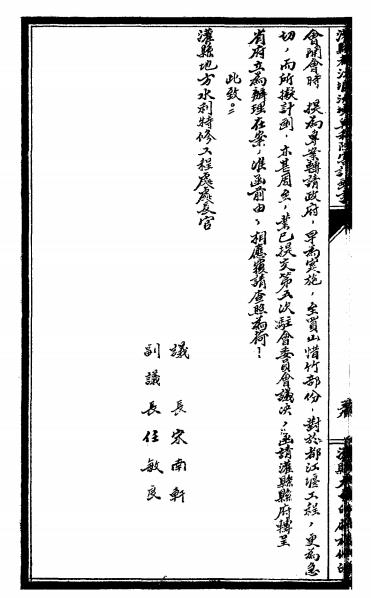 會開會時,提為專案轉請政府,早為實施,至買山惜竹部份,對於都江堰工程,更為急
切,而所擬計劃,亦甚周至,業已提交第五次駐會委員會議決,函請灌縣縣府轉呈
省府立為辦理在案,准函前由,相應覆請查照為荷!
此致
灌縣地方水利特修工程處處長官
議長宋南軒
副議長任敏良